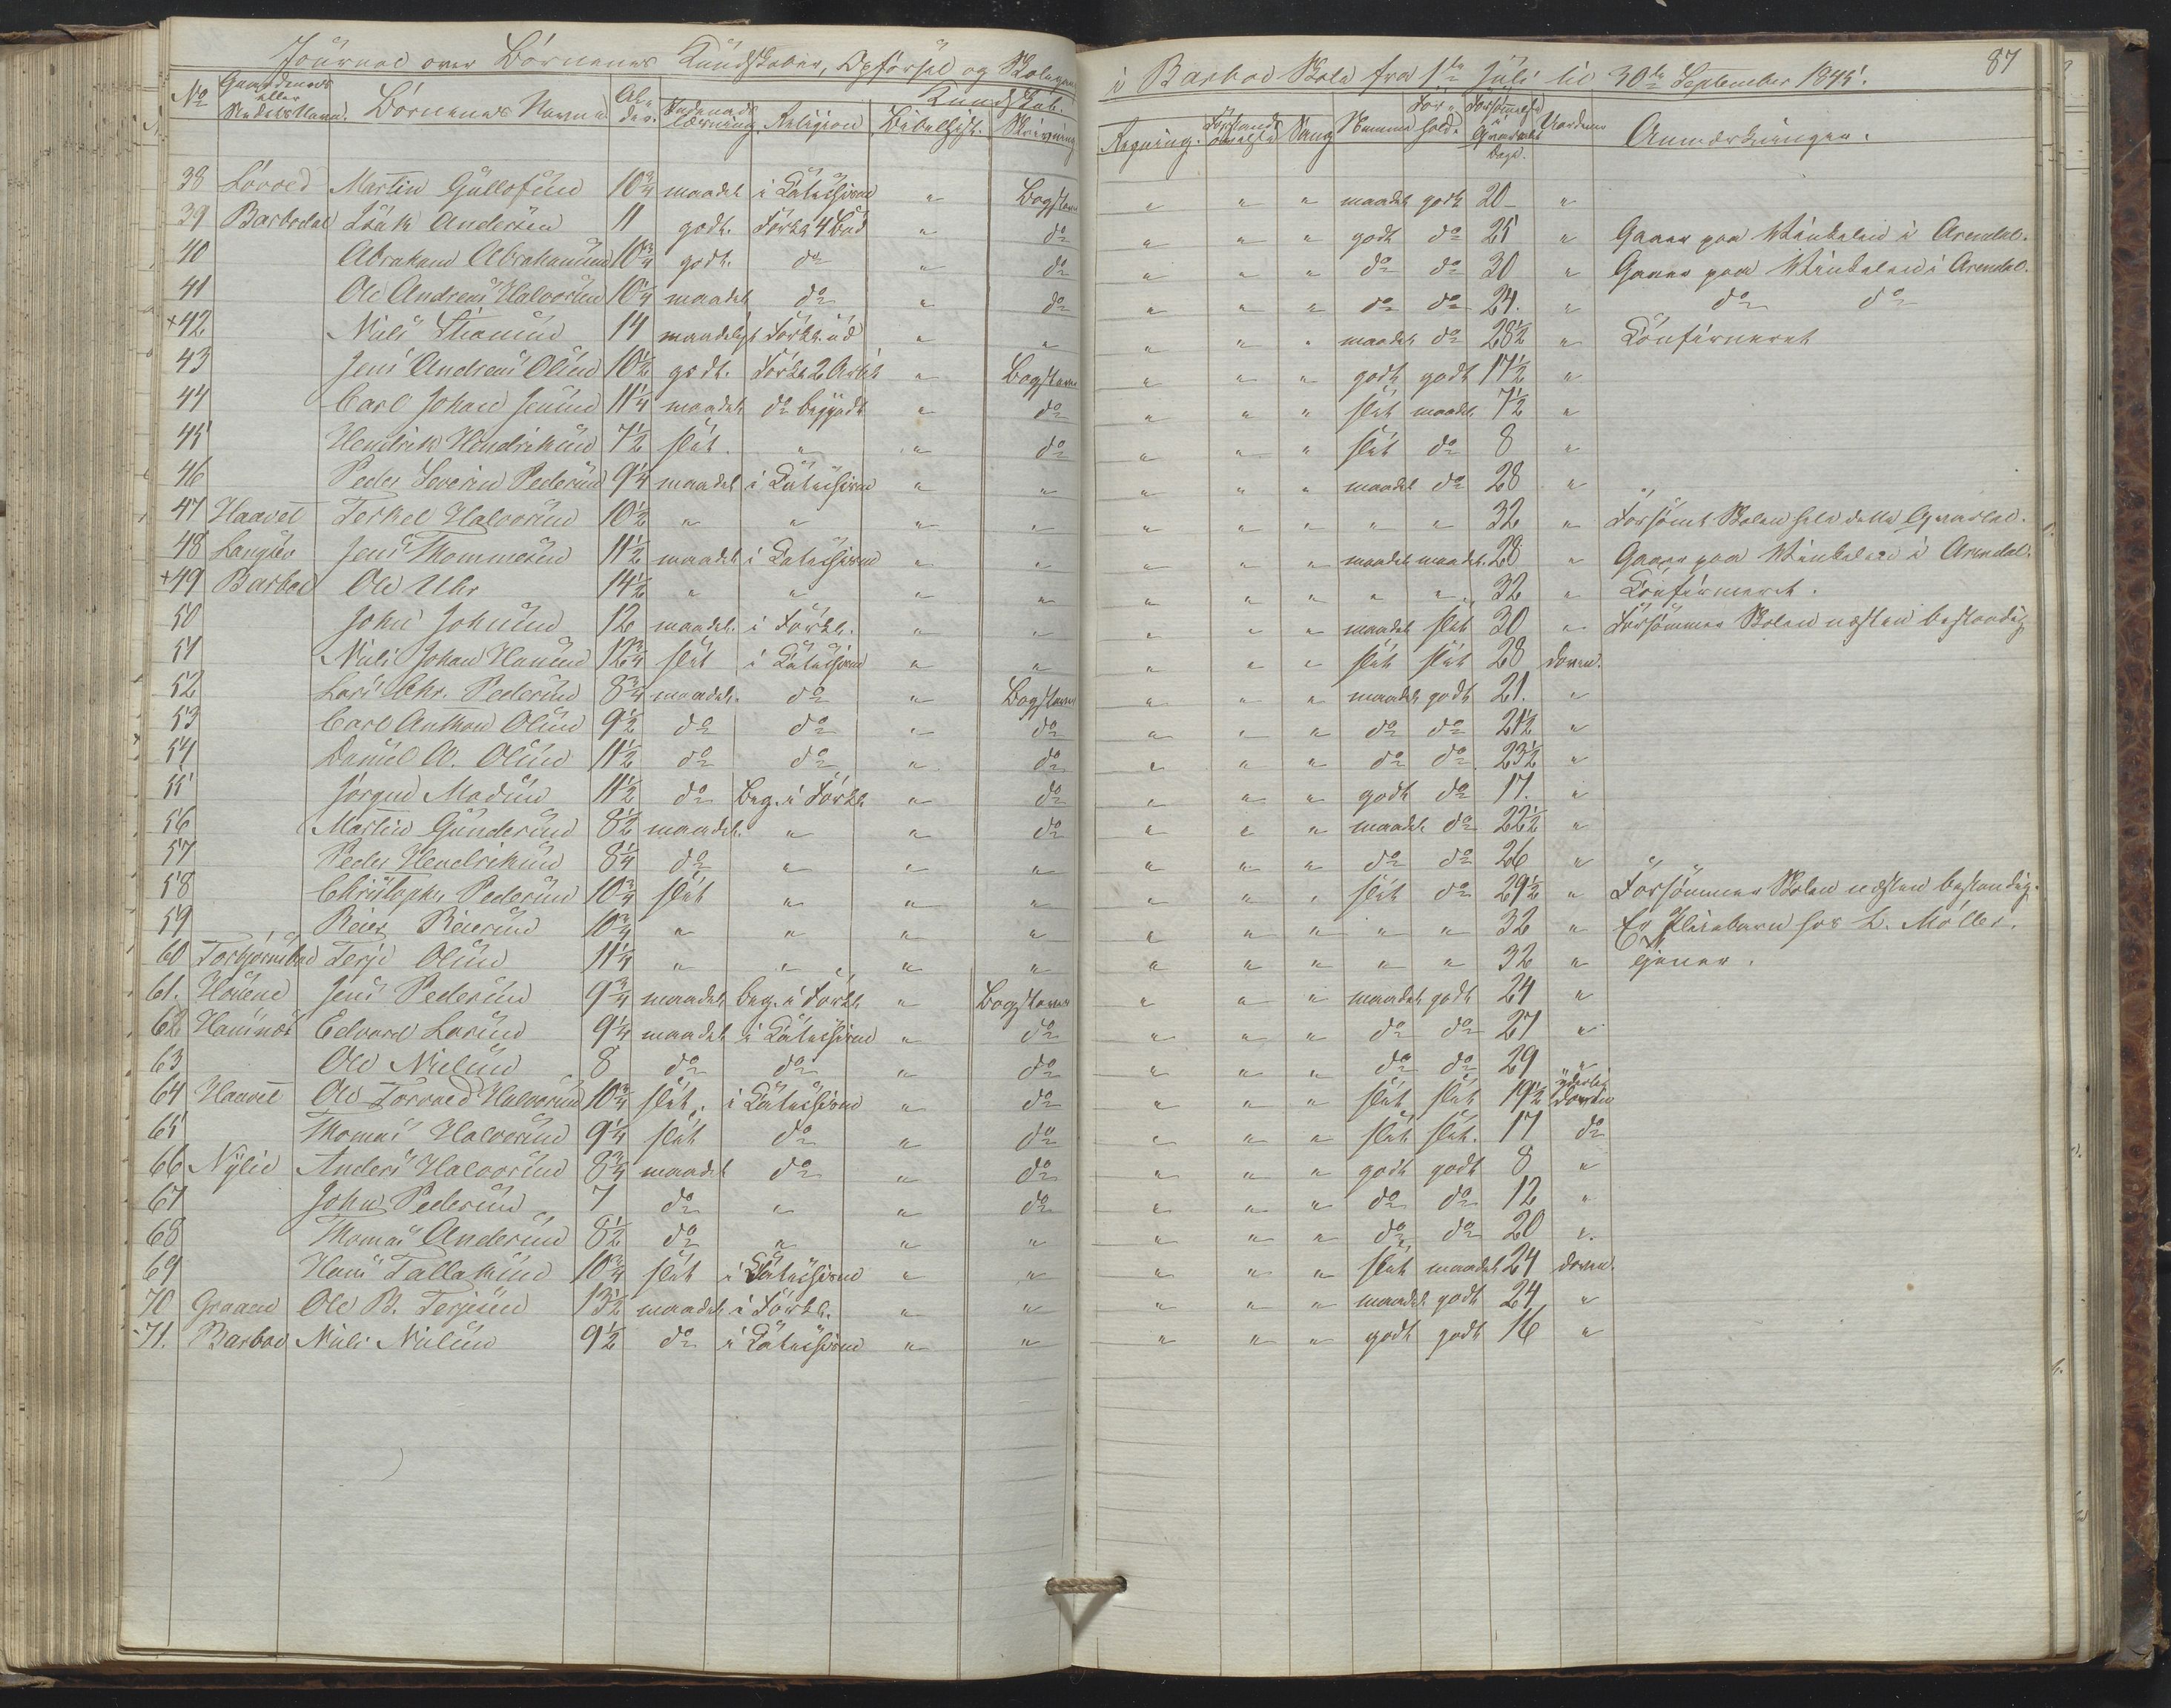 Journal over Börnenes Kundskaber, Opförsel og
i Barboe Skole fra 1ste Juli til 30te September 1845.
87
No Gaardenes eller Stedets Navn. Börnenes Navne Al- der. Indenads læsning Religion Bibelhist. Kundskab. Skrivning Regning. Forstands övelse Sang Nemme For- hold. Forsömmelse i Qvartalet Dage. Anmærkninger.
38 Martin Gullofsen 10 3/4 maadel i Catechismen " Bogstaver " " " maadel godt 20 "
39 Isak Andersen 11 godt. Forkl 4 Bud " do " " " godt do 25 " Gaaer paa i Arendal.
40 Abraham Abrahamsen 10 3/4 godt. do " do " " " do do 30 " Gaaer paa i Arendal.
41 Ole Andreas Halvorsen 10 1/4 maadel do " do " " " do do 24. " do do
+42 Niels 14 maadeligt Forkl. ud " " " " " maadel do 28 1/2 " Confirmeret
43 Jens Andreas Olsen 10 1/2 godt. Forkl 2 Art " Bogstaver " " " godt godt 17 1/2 "
44 Carl Johan Jensen 11 1/4 maadel do begyndt " do " " " slet maadel. 7 1/2 "
45 Hendrik Hendriksen 7 1/2 slet. " " do " " " slet do 8 "
46 Peder Severin Pedersen 9 1/4 maadel i Catechismen " " " " " maadel do 28 "
47 Haavet Terkel Halvorsen 10 1/2 " " " " " " " " " 32 " Forsömt Skolen hele dette Qvartal.
48 Langsev Jens Thommesen 11 1/2 maadel i Catechismen " " " " " maadel maadel. 28 " Gaaer paa i Arendal.
+49 Barboe Ole Uhr 14 1/2 " " " " " " " " " 32 " Confirmeret.
50 John Johnsen 12 maadel. i Forkl. " " " " " maadel slet 30 " Forsömmer Skolen næsten bestandig
51 Niels Johan Hansen 12 3/4 slet i Catechismen " " " " " slet slet 28 doven.
52 Lars Chr. Pedersen 8 3/4 maadel. do " Bogstaver " " " maadel godt 21. "
53 Carl Anthon Olsen 9 1/2 do do " do " " " do do 21 1/2 "
54 Daniel A. Olsen 11 1/2 do do " do " " " do do 23 1/2 "
55 Jörgen Madsen 11 1/2 do beg. i Forkl " do " " " godt do 17. "
56 Martin Gundersen 8 1/2 maadel. " " do " " " maadel. do 22 1/2 "
57 Peder Hendriksen 8 1/4 do " " " " " " do do 26 "
58 Christopher Pedersen 10 3/4 slet " " " " " " slet do 29 1/2 " Forsömmer Skolen næsten bestandig.
59 Reier Reiersen 10 3/4 " " " " " " " " " 32 " Er Pleiebarn hos L. Möller.
60 Terje Olsen 11 1/4 " " " " " " " " " 32 "
61. Jens Pedersen 9 3/4 maadel beg. i Forkl. " Bogstaver " " " maadel godt 24 "
62 Edvard Larsen 9 1/4 maadel i Catechismen " do " " " do do 27 "
63 Ole Nielsen 8 do do " do " " " do do 29 "
64 Haavet Ole Torvald Halvorsen 10 3/4 slet. i Catechismen " do " " " slet slet 19 1/2 yderlig doven
65 Thomas Halvorsen 9 1/4 slet do " do " " " slet slet. 17 do
66 Nylie Anders Halvorsen 8 3/4 maadel do " do " " " godt godt 8 "
67 John Pedersen 7 do " " do " " " do do 12 "
68 Thomas Andersen 8 1/2 do " " " " " " do do 20 ".
69 Hans Tallaksen 10 3/4 slet i Catechismen " " " " " slet maadel 24 doven.
70 Ole B. Terjesen 13 1/2 maadel i Forkl. " " " " " maadel godt 24 "
71. Barboe Niels Nielsen 9 1/2 do i Catechismen " " " " " godt godt 16 "